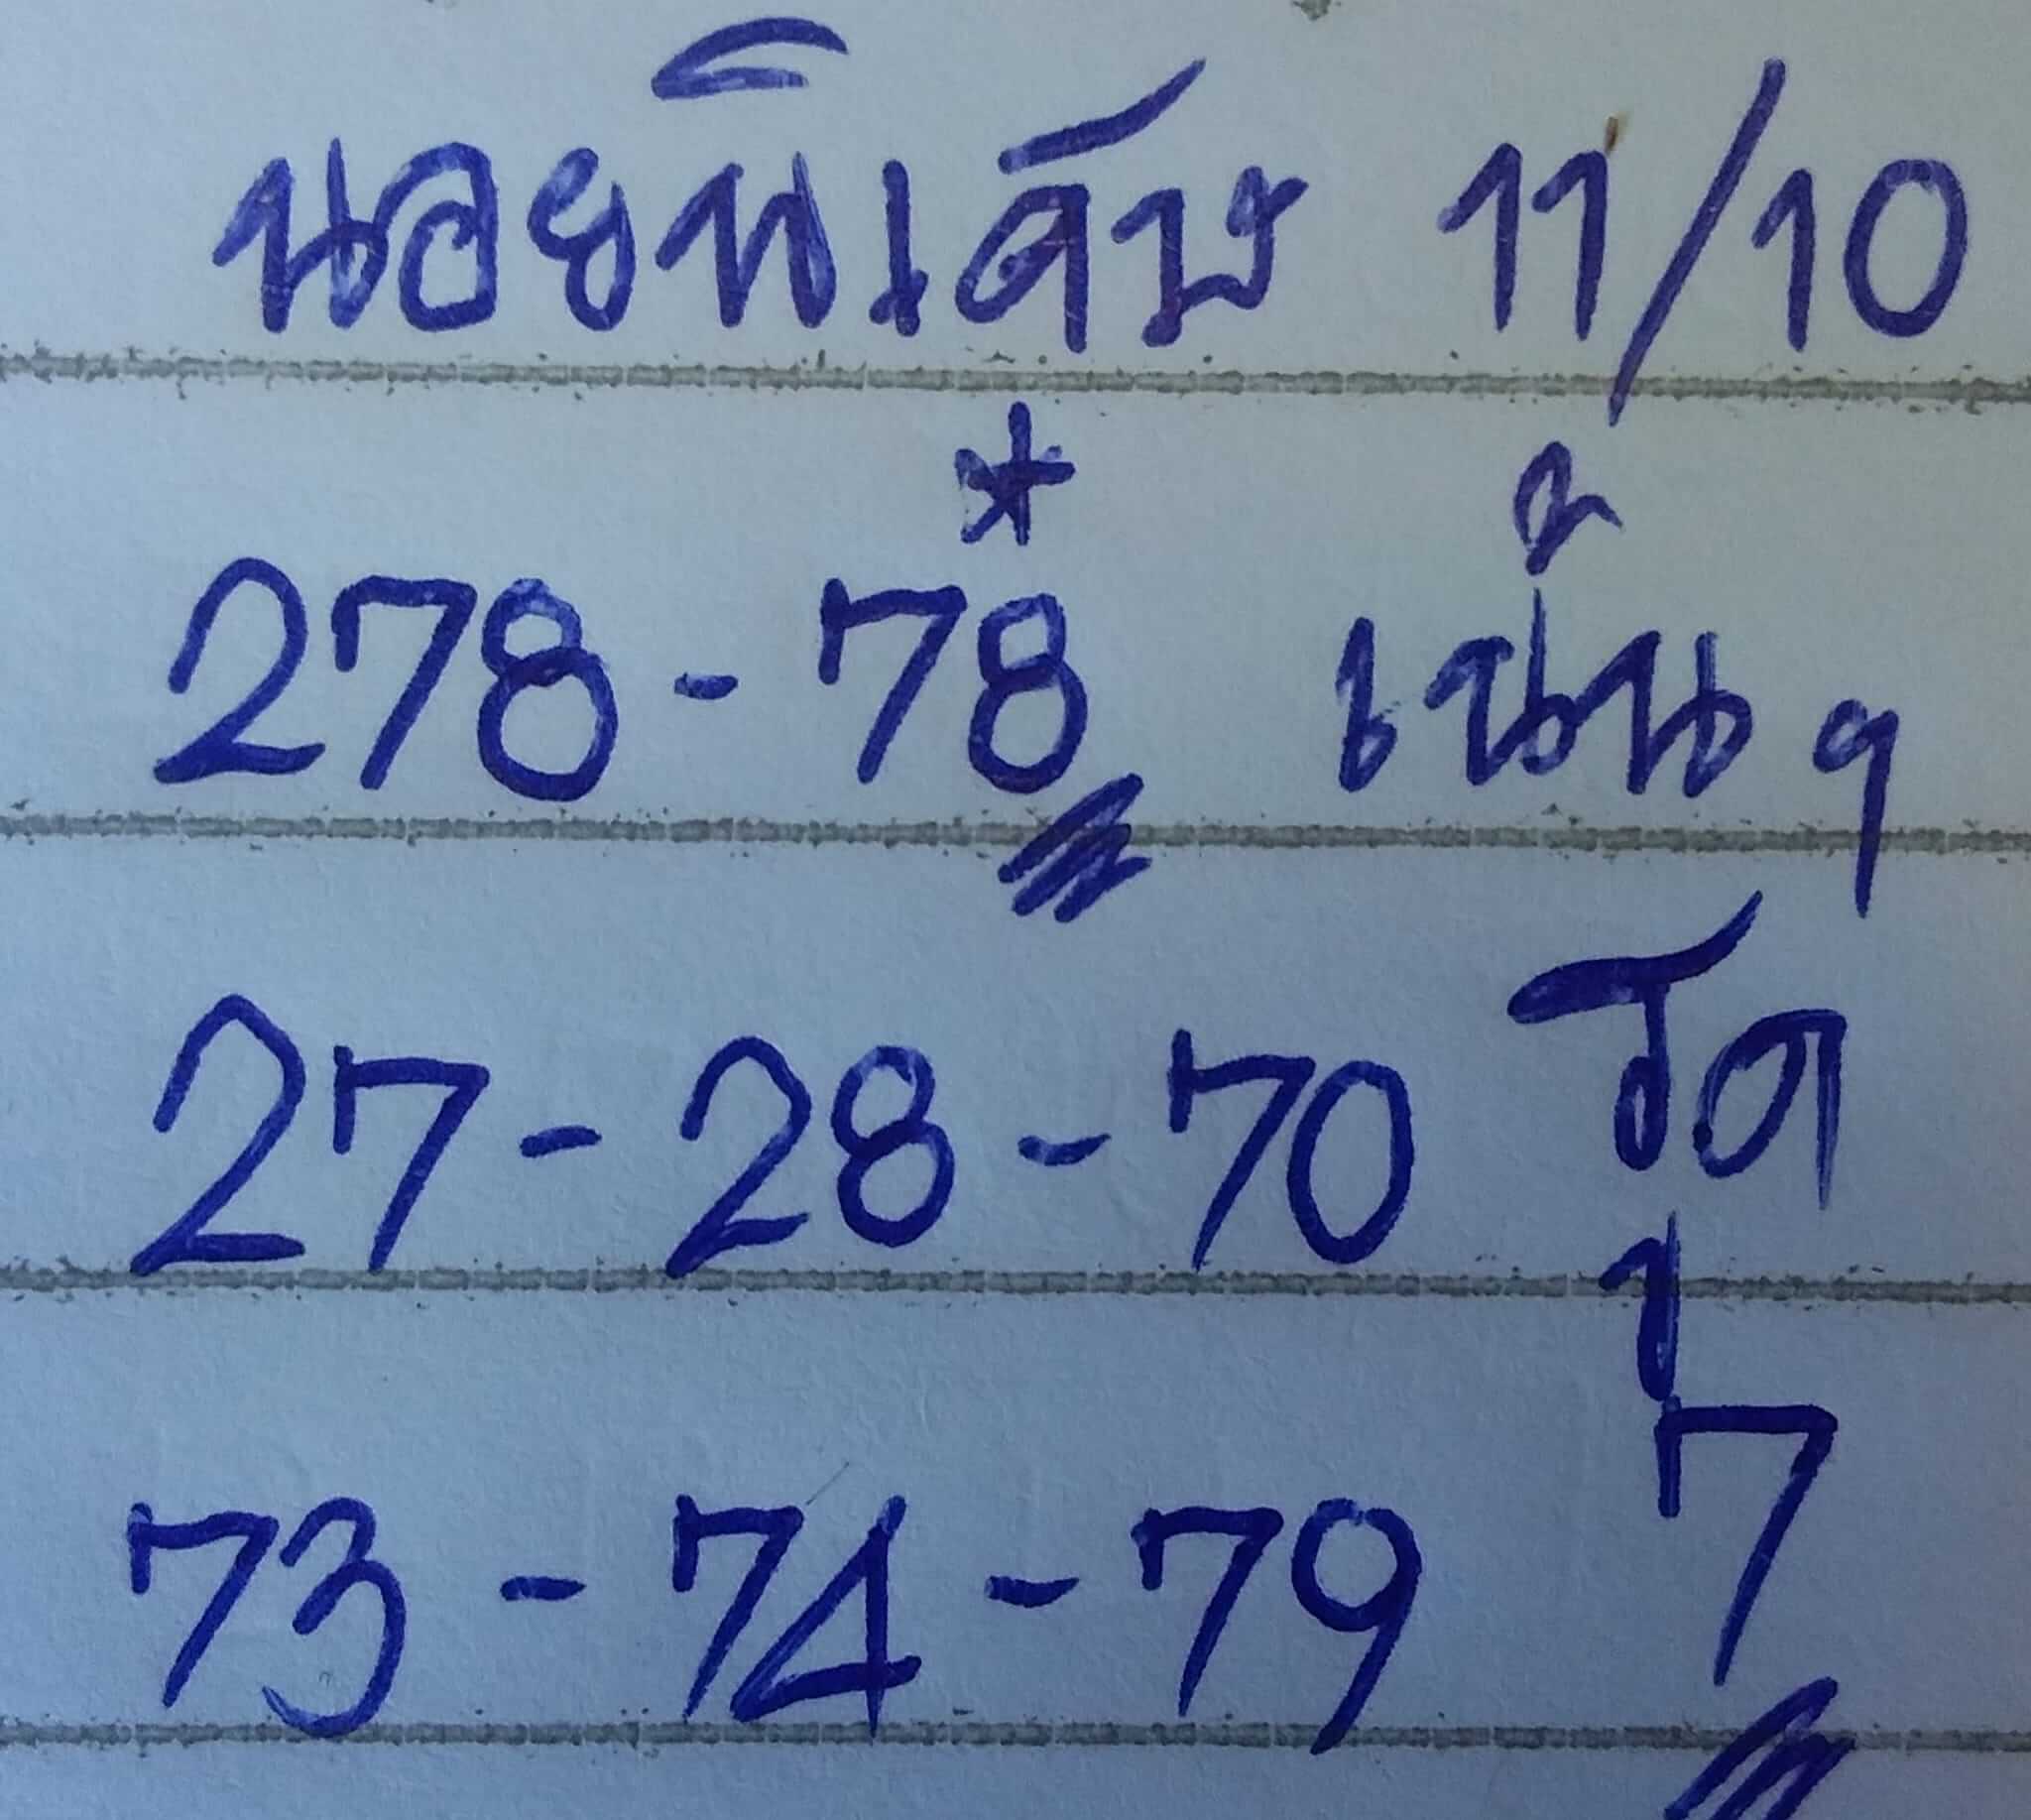 นอยพิเศษ 11/10
*
278 - 78 เน้น ๆ
27 - 28 - 70 รูด
73 - 74 - 79 7